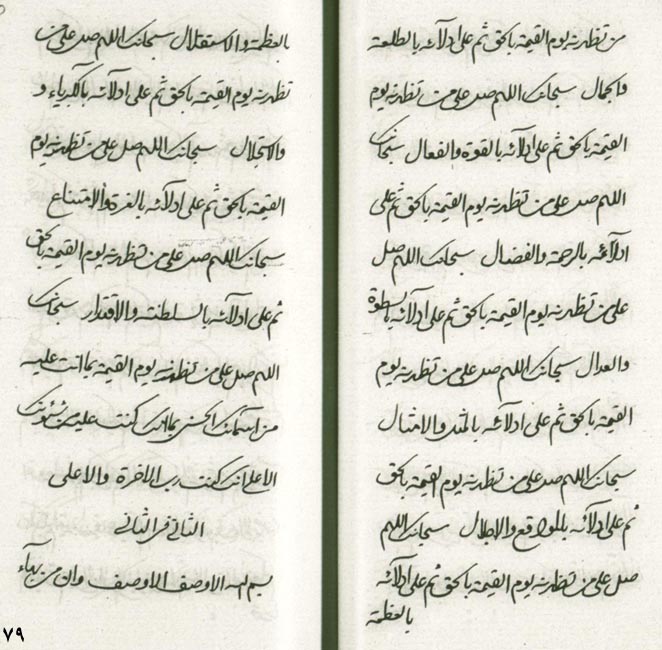 من تظهرنه يوم القيمة بالحق ثم على ادلآئه بالطلعة
والجمال سبحانك اللهم صل على من تظهرنه يوم
القيمة بالحق ثم على ادلآئه بالقوة والفعال سبحانك
اللهم صل على من تظهرنه يوم القيمة بالحق ثم على
ادلآئه بالرحمة والفضال سبحانك اللهم صل
على من تظهرنه يوم القيمة بالحق ثم على ادلآئه بالسطوة
والعدال سبحانك اللهم صل على من تظهرنه يوم
القيمة بالحق ثم على ادلآئه بالمثل والامثال
سبحانك اللهم صل على من تظهرنه يوم القيمة بالحق
ثم على ادلآئه بالمواقع والاجلال سبحانك اللهم
صل على من تظهرنه يوم القيمة بالحق ثم على ادلآئه
بالعظمة
بالعظمة والاستقلال سبحانك اللهم صل على من
تظهرنه يوم القيمة بالحق ثم على ادلآئه بالكبرياء و
والاستجلال سبحانك اللهم صل على من تظهرنه يوم
القيمة بالحق ثم على ادلآئه بالعزة والامتناع
سبحانك اللهم صل على من تظهرنه يوم القيمة بالحق
ثم على ادلآئه بالسلطنة والاقتدار سبحانك
اللهم صل على من تظهرنه يوم القيمة بما انت عليه
من اسمآئك الحسنى بما انت كنت عليه من شئونك
الاعلى انك كنت رب الاخرة والاولى
الثاني في الثاني
بسم الله الاوصف الاوصف وان من بهآء
٧٩